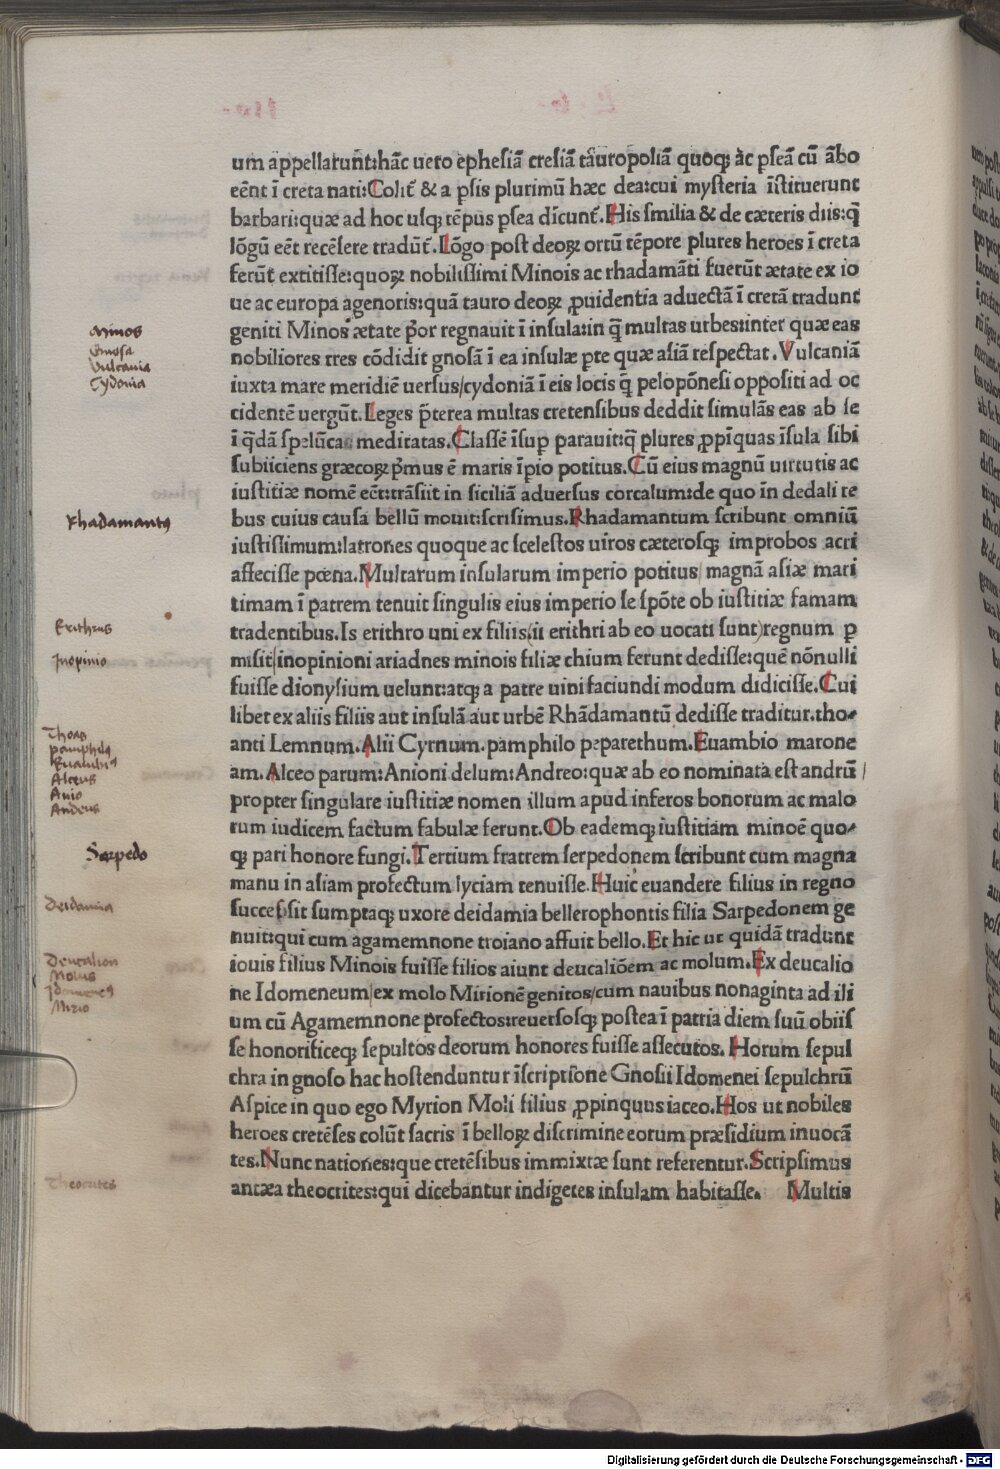 um appellarunt:hāc uero ephesiā cresiā tauropoliā quoq; ac pseā cū ābo
eēnt ī creta nati:Colit̄ & a psis plurimū hæc dea:cui mysteria īstituerunt
barbari:quæ ad hoc usq; tēpus psea dicunt̄.His similia & de cæteris diis:q̄
lōgū eēt recēsere tradūt̄.Lōgo post deoꝝ ortū tēpore plures heroes ī creta
ferūt̄ extitisse:quoꝝ nobilissimi Minois ac rhadamāti fuerūt ætate ex io
ue ac europa agenoris:quā tauro deoꝝ ꝓuidentia aduectā ī cretā tradunt
geniti Minos ætate p̄or regnauit ī insula:in q̄ multas urbes:inter quæ eas
nobiliores tres cōdidit gnosā ī ea insulæ p̱te quæ asiā respectat.Vulcaniā
iuxta mare meridiē uersus/cydoniā ī eis locis q̄ pelopōnesi oppositi ad oc
cidentē uergūt.Leges p̄terea multas cretensibus deddit simulās eas ab se
ī q̄dā spelūca meditatas.Classē īsup parauit:q̄ plures ꝓpīquas īsula sibi
subiiciens græcoꝝ p̄mus ē maris īpio potitus.Cū eius magnū uirtutis ac
iustitiæ nomē eēt:trāsiit in siciliā aduersus corcalum:de quo in dedali re
bus cuius causa bellū mouit:scrisimus.Rhadamantum scribunt omniū
iustissimum:latrones quoque ac scelestos uiros cæterosq; improbos acri
affecisse pœna.Multarum insularum imperio potitus magnā asiæ mari
timam ī patrem tenuit singulis eius imperio se spōte ob iustitiæ famam
tradentibus.Is erithro uni ex filiis(ii erithri ab eo uocati sunt)regnum ꝑ
misit/inopinioni ariadnes minois filiæ chium ferunt dedisse:quē nōnulli
fuisse dionysium uelunt:atq; a patre uini faciundi modum didicisse.Cui
libet ex aliis filiis aut insulā aut urbē Rhādamantū dedisse traditur.tho-
anti Lemnum.Alii Cyrnum.pamphilo peparethum.Euambio marone
am.Alceo parum:Anioni delum:Andreo:quæ ab eo nominata est andrū/
propter singulare iustitiæ nomen illum apud inferos bonorum ac malo
rum iudicem factum fabulæ ferunt.Ob eademq; iustitiam minoē quo-
q; pari honore fungi.Tertium fratrem serpedonem scribunt cum magna
manu in asiam profectum lyciam tenuisse.Huic euandere filius in regno
successit sumptaq; uxore deidamia bellerophontis filia Sarpedonem ge
nuit:qui cum agamemnone troiano affuit bello.Et hic ut quidā tradunt
iouis filius Minois fuisse filios aiunt deucaliōem ac molum.Ex deucalio
ne Idomeneum/ex molo Mirionē genitos/cum nauibus nonaginta ad ili
um cū Agamemnone profectos:reuersosq; postea ī patria diem suū obiis
se honorificeq; sepultos deorum honores fuisse assecutos. Horum sepul
chra in gnoso hac hostenduntur īscriptione Gnosii Idomenei sepulchrū
Aspice in quo ego Myrion Moli filius ꝓpinquus iaceo.Hos ut nobiles
heroes cretēses colūt sacris ī belloꝝ discrimine eorum præsidium inuocā
tes.Nunc nationes:que cretēsibus immixtæ sunt referentur.Scripsimus
antæa theoctites:qui dicebantur indigetes insulam habitasse. Multis
Minos
Gnosa
Vulcania
Cydonia
Rhadamantꝯ
Erithrus
Inopinio
Thoas
pamphilꝯ
Alceus
Anio
Andreus
Sarpedo
Deidamia
Deucalion
Molus
Mirio
Theoctites
Digitalisierung gefördert durch die Deutsche Forschungsgemeinschaft - DFG